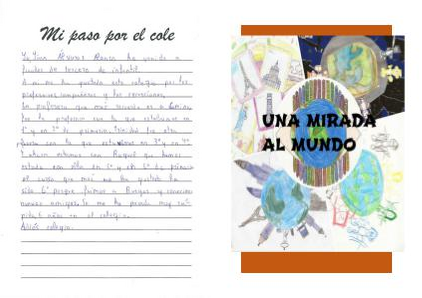 Mi paso por el cole
Yo, Álvarez he venido a
finales de tercero de infantil.
A mi me ha gustado este colegio por los
profesores compañeros y las excursiones.
La profesora que más recuerdo es a
fue la profesora con la que estuvimos en
1º y en 2º de primaria. fue otra
con la que estuvimos en 3º y en 4º
Y ahora estamos con Raquel que hemos
estado con ella en 5º y en 6º de primaria
el curso que más me ha gustado ha
sido 6º porque fuimos a Burgos y conocimos
nuevos amigos. Lo me ha pasado muy
niños en el colegio.
Adiós colegio.
UNA MIRADA
AL MUNDO